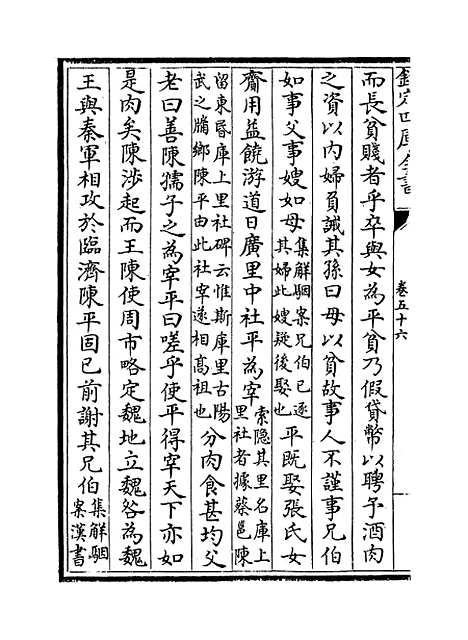 欽定四庫全書
卷五十六
而長貧賤者乎卒與女為平貧乃假貸幣以聘予酒肉
之資以内婦負誡其孫曰毋以貧故事人不謹事兄伯
如事父事嫂如母集解駰案兄伯已逐其婦此嫂疑後娶也平既娶張氏女
齎用益饒游道日廣里中社平為宰索隱其里名庫上里社者據蔡邕陳
留東昏庫上里社碑云惟斯庫里古陽武之牖鄉陳平由此社宰遂相高祖也分肉食甚均父
老曰善陳孺子之為宰平曰嗟乎使平得宰天下亦如
是肉矣陳涉起而王陳使周市略定魏地立魏咎為魏
王與秦軍相攻於臨濟陳平固已前謝其兄伯集解駰案漢書